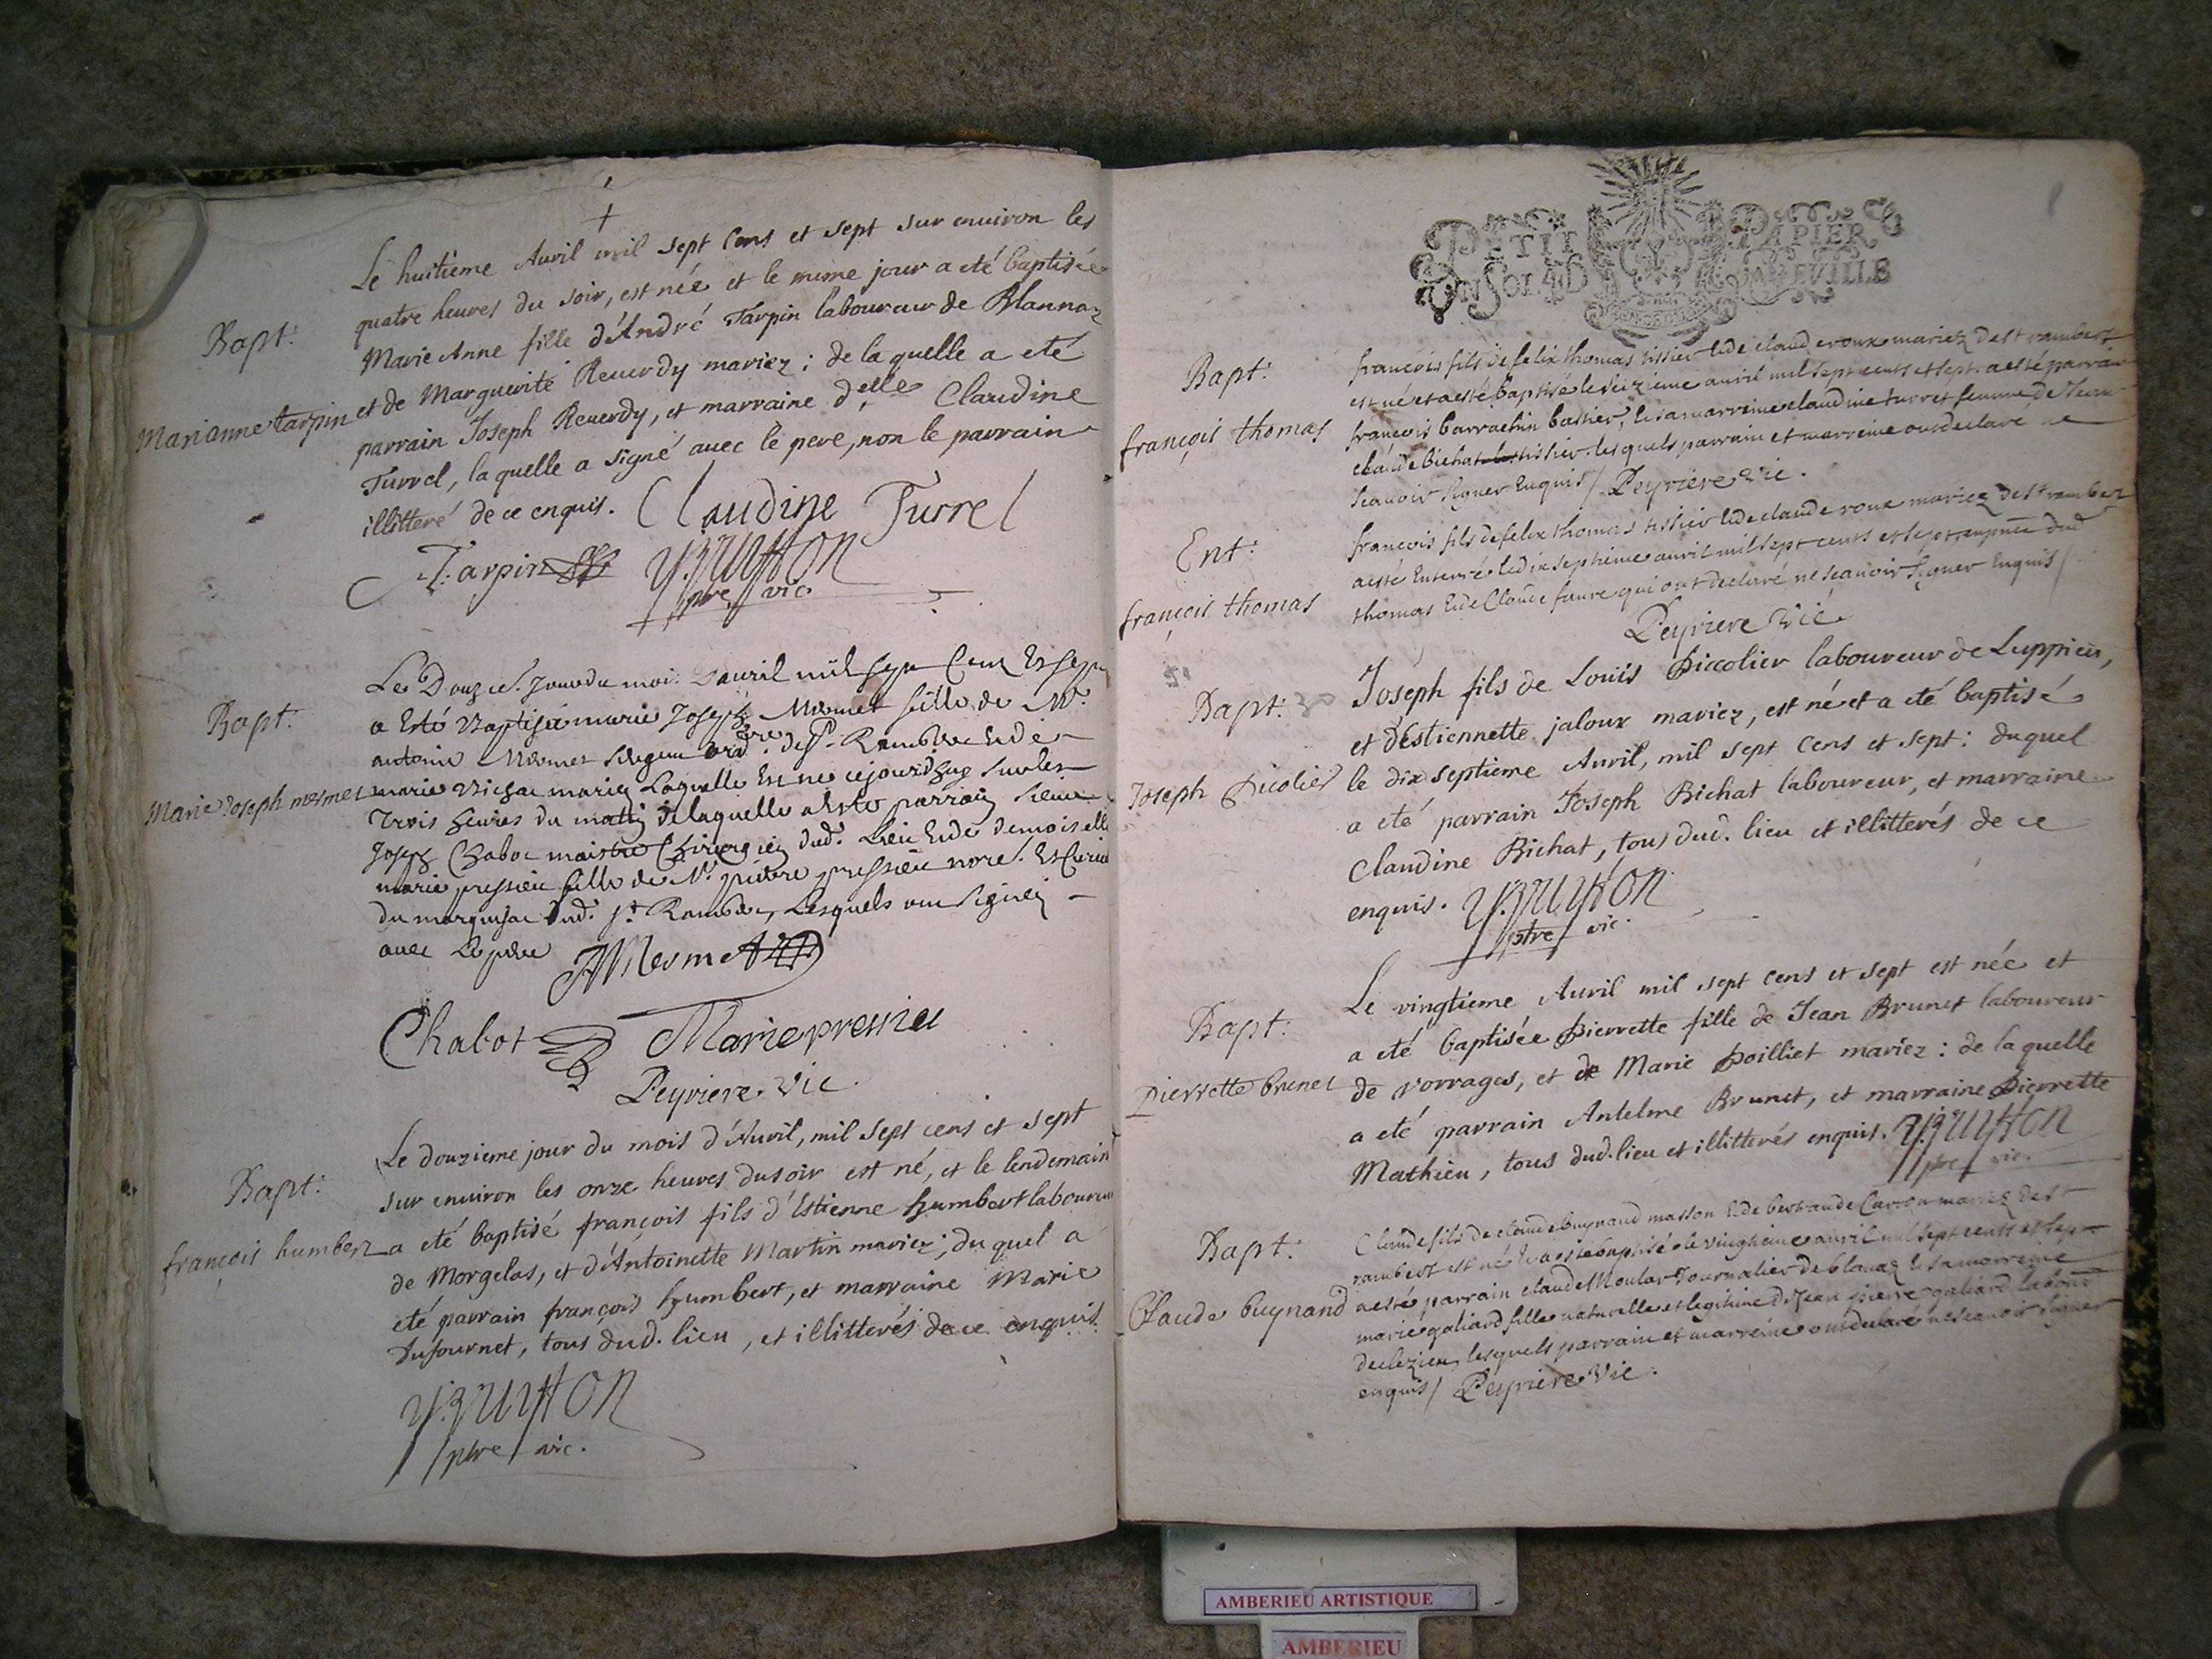 Le huitieme Auril mil sept Cens et sept sur enuiron les
quatre heures du soir, est née et le mime jour a eté baptisée
Marie Anne fille d'André Tarpin laboureur de Blannaz
et de Marguerite Reuerdy mariez; de la quelle a eté
parrain Joseph Reuerdy, et marraine delle Claudine
Turrel, la quelle a signé auec le pere, non le parrain
illitteré de ce enquis. Claudine Turrel
Bapt:
Marianne tarpin
Tarpin
ptre vic.
Le Douze. Jour du moi. Dauril mil sept Cent Et sept
a Esté Baptisée marie Joseph Mermet fille de Mr.
antoine Mermet de st. Rambert Et de
marie Bichat mariez Laquelle Est née cejourdhuy sur les
Trois heures du matin de laquelle a Esté parrain sieur
Joseph Chabot maistre Chirurgien dud. Lieu Et de demoiselle
marie pressieu fille de Mr. pierre pressieu
du marquisat dud. st. Rambert, Lesquels ont signéz
auec Le pere Mermet
Bapt:
Marie Joseph mermet
Chabot Marie pressieu
Peyriere. Vic.
Le douzieme jour du mois d'Auril, mil sept cens et sept
sur enuiron les onze heures du soir est né, et le lendemain
a eté baptisé françois fils d'Estienne humbert laboureur
de Morgelas, et d'Antoinette Martin mariez; du quel a
eté parrain françois humbert, et marraine Marie
Dufournet, tous dud. lieu, et illitterés de ce enquis.
Bapt:
françois humbert
ptre vic.
PETIT PAPIER
UN SOL 4D
françois fils de felix thomas tissier Et de claude roux mariez de st rambert
est né et a esté baptisé le seizieme auril mil sept cents et sept. a esté parrain
françois barrachin bastier, Et sa marreine claudine turret femme de Jean
claude bichat tissier. les quels parrain et marreine ont declaré ne
scauoir signer Enquis / Peyriere Vic.
Bapt:
françois thomas
françois fils de felix thomas tissier Et de claude roux mariez de st rambert
a esté Enterré le dix septieme auril mil sept cents et sept en pnce dud
thomas Et de Claude faure qui ont declaré ne scauoir signer Enquis /
Peyriere Vic.
Ent:
françois thomas
Joseph fils de Louis Piccolier laboureur de Luppieu,
et d'Estiennette jaloux mariez, est né et a eté baptisé
le dix septieme Auril, mil sept Cens et sept: duquel
a eté parrain Joseph Bichat laboureur, et marraine
Claudine Bichat, tous dud. lieu et illitterés de ce
enquis.
ptre vic.
Bapt:
Joseph Picolier
Le vingtieme Auril mil sept cens et sept est née et
a eté baptisée Pierrette fille de Jean Brunet laboureur
de vorrages, et de Marie Poilliet mariez: de la quelle
a eté parrain Antelme Brunet, et marraine Pierrette
Mathieu, tous dud. lieu et illitterés enquis.
ptre vic.
Bapt:
Pierrette brunet
Claude fils de claude buynand masson Et de bertrande Carron mariez de st
rambert est né Et a esté baptisé le vingtieme auril mil sept cents et sept
a esté parrain claude Moular Journalier de blanaz Et sa marreine
marie galiard fille naturelle et legitime de Jean pierre galiard labour
de clezieu, lesquels parrain et marreine ont declaré ne scauoir signer
enquis / Peyriere Vic.
Bapt:
Claude buynand
AMBERIEU ARTISTIQUE
AMBERIEU